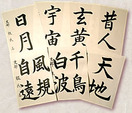 昔人
天地
玄黄
宇宙
日月
千鳥
白波
風規
自遠